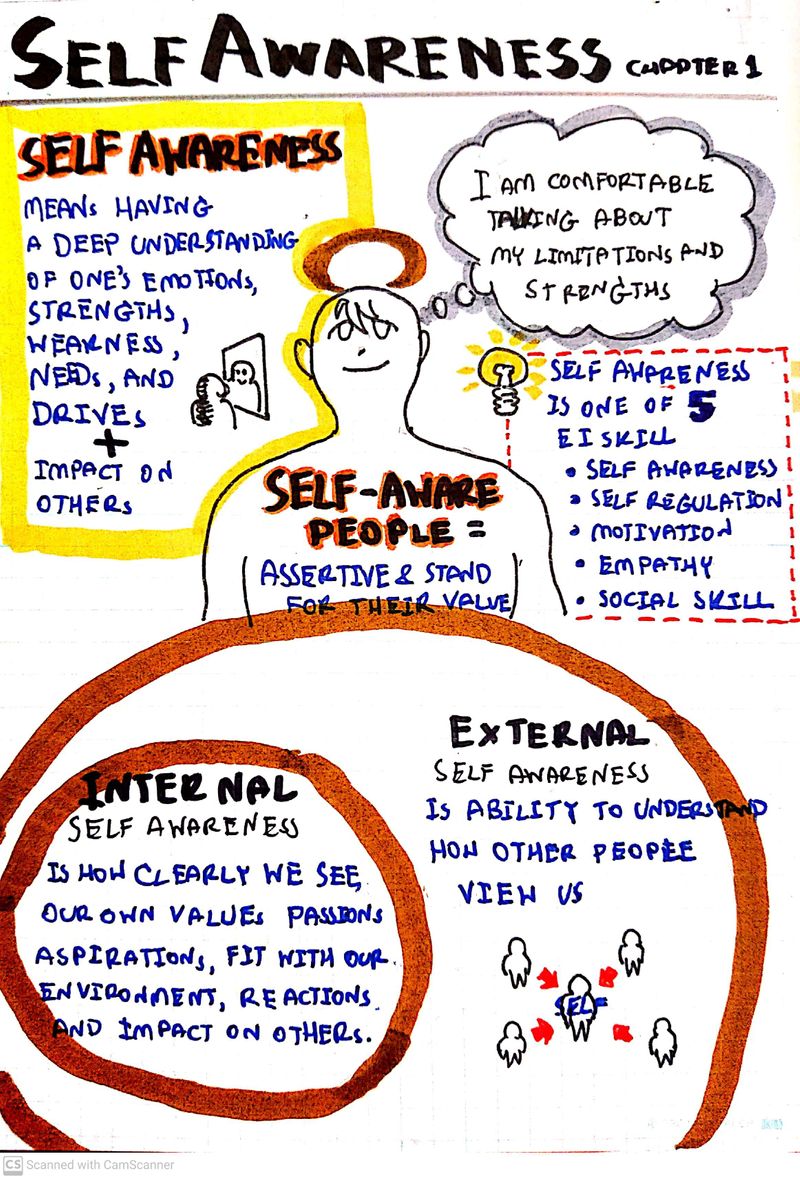 SELF AWARENESS CHAPTER 1
SELF AWARENESS
MEANS HAVING
A DEEP UNDERSTANDING
OF ONE'S EMOTIONS,
STRENGTHS,
WEAKNESS,
NEEDS, AND
DRIVES
+
IMPACT ON
OTHERS
I AM COMFORTABLE
TALKING ABOUT
MY LIMITATIONS AND
STRENGTHS
SELF AWARENESS
IS ONE OF 5
EI SKILL
• SELF AWARENESS
• SELF REGULATION
• MOTIVATION
• EMPATHY
• SOCIAL SKILL
SELF-AWARE
PEOPLE =
ASSERTIVE & STAND
FOR THEIR VALUE
INTERNAL
SELF AWARENESS
IS HOW CLEARLY WE SEE
OUR OWN VALUES PASSIONS
ASPIRATIONS, FIT WITH OUR
ENVIRONMENT, REACTIONS
AND IMPACT ON OTHERS.
EXTERNAL
SELF AWARENESS
IS ABILITY TO UNDERSTAND
HOW OTHER PEOPLE
VIEW US
SELF
CS Scanned with CamScanner